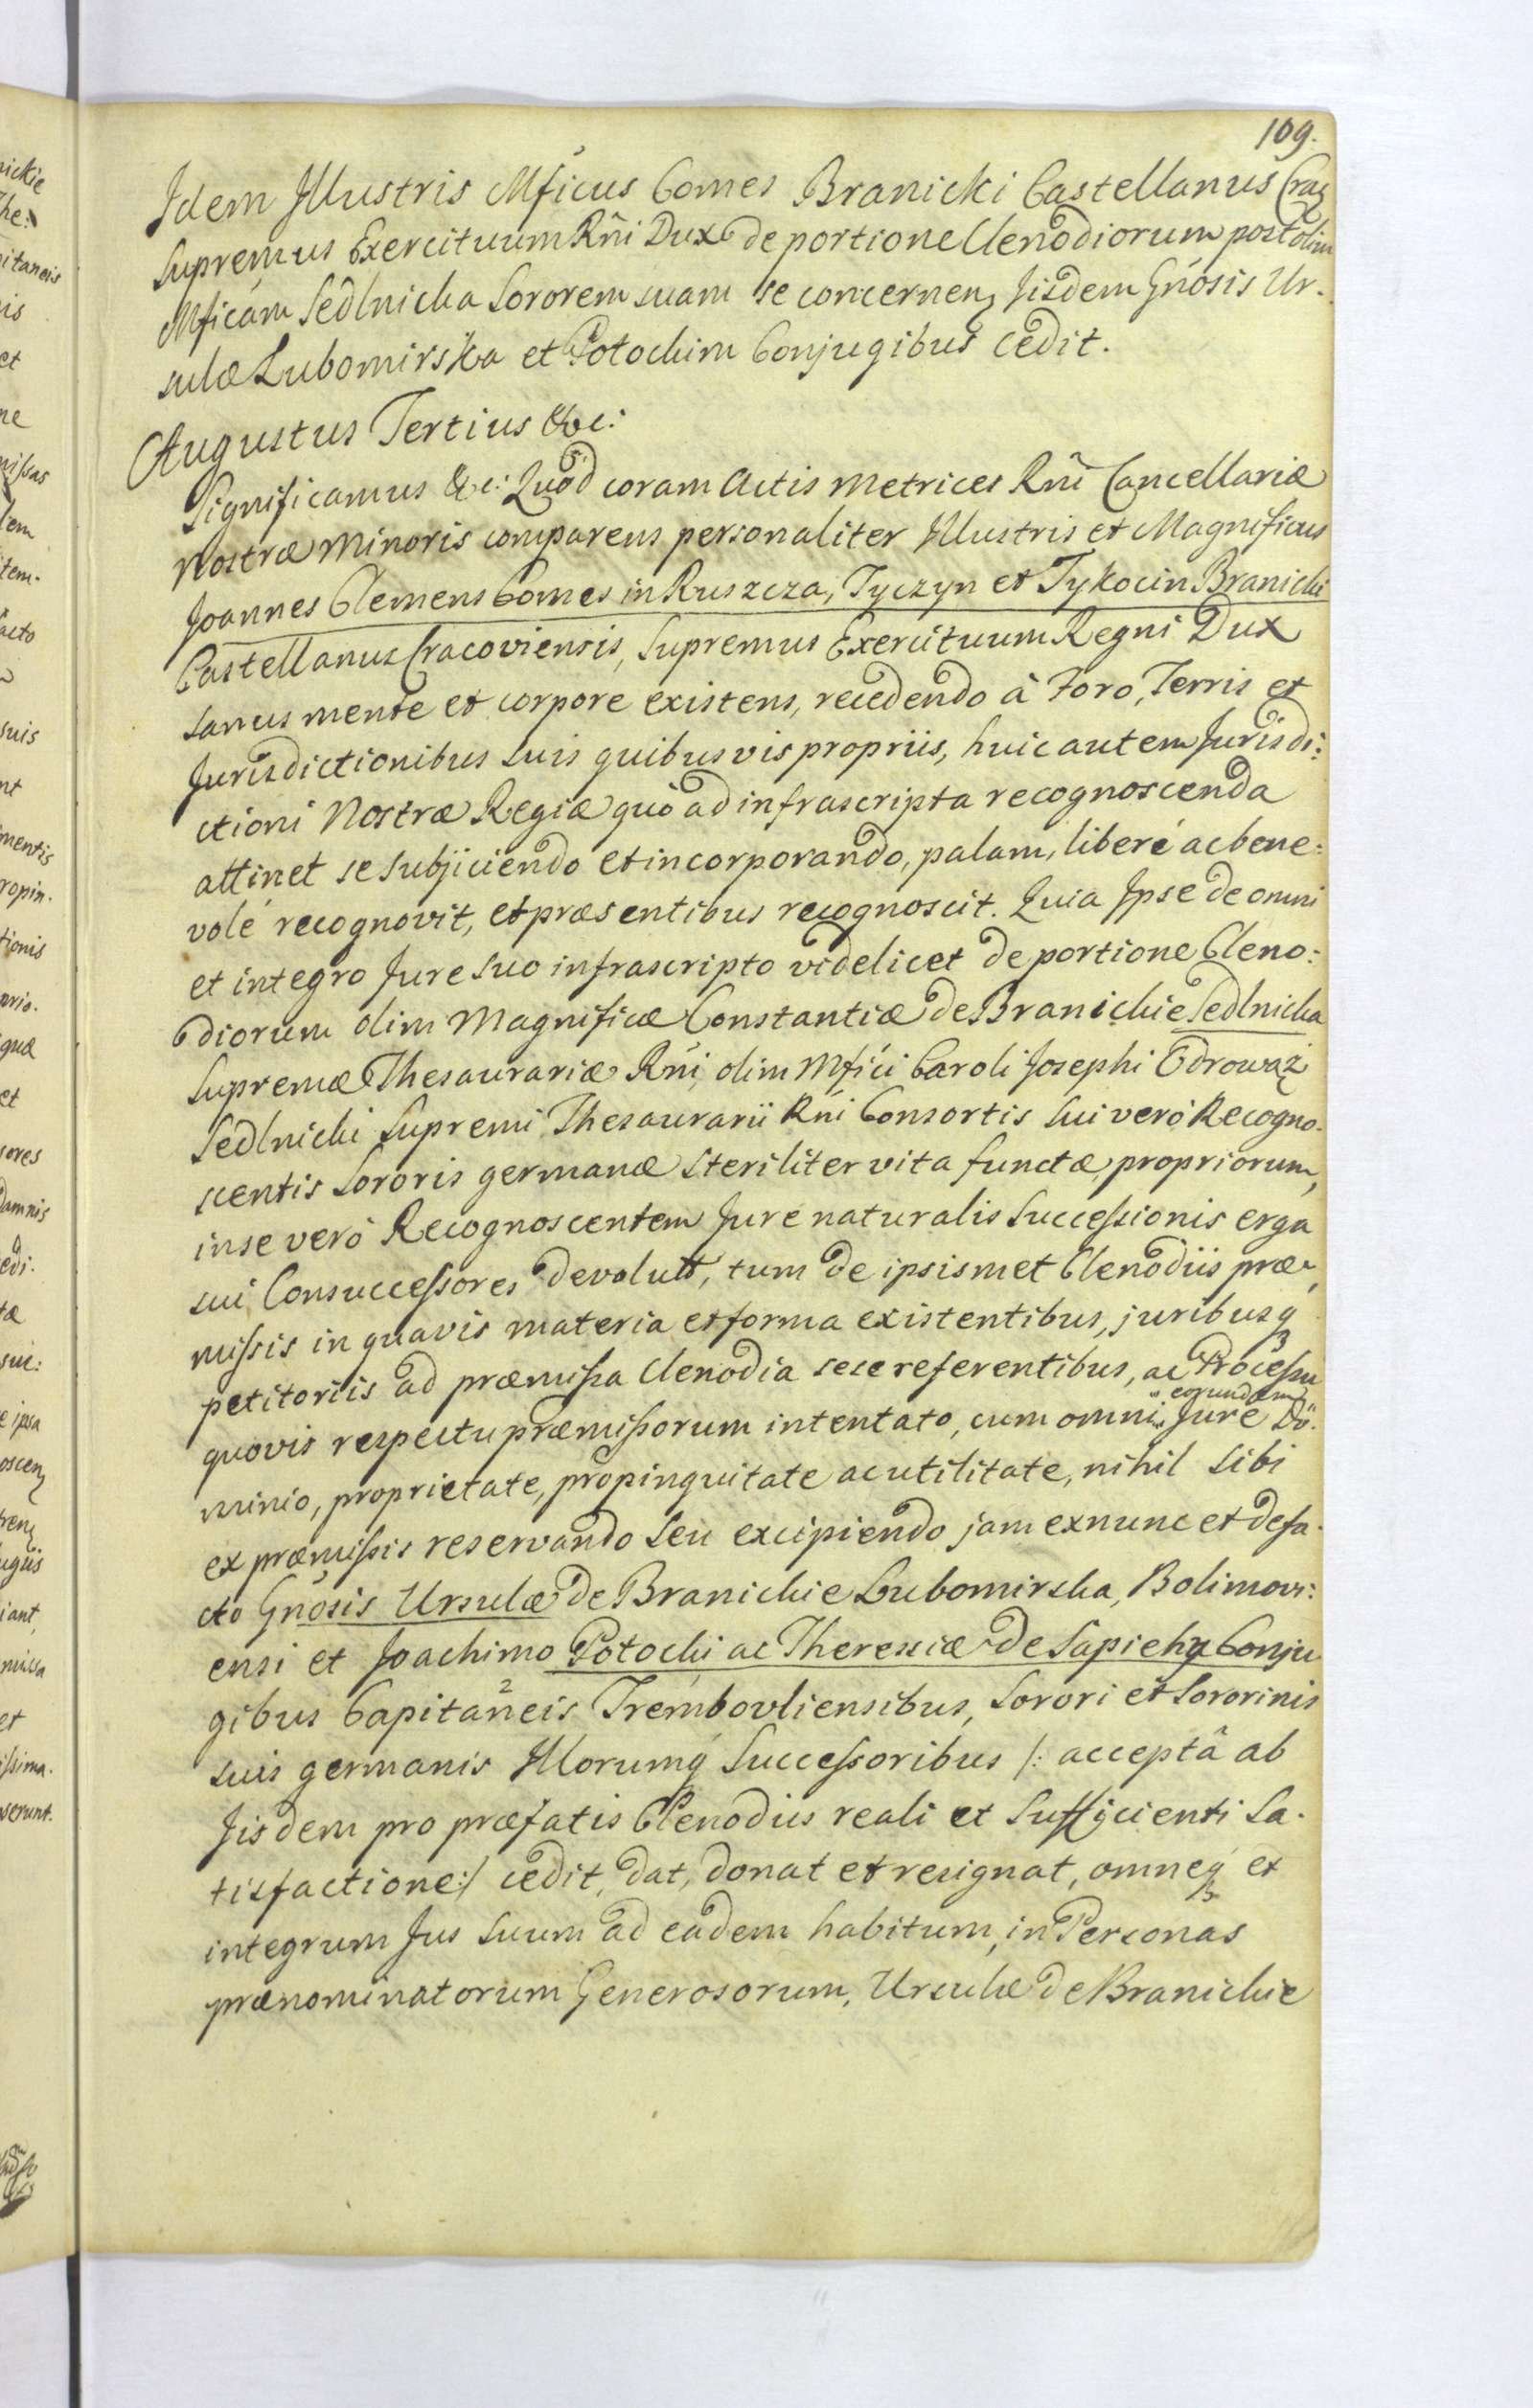 109.
Idem Illustris Mficus Comes Branicki Castellanus Crac
Supremus Exercituum Rñi Dux de portione Clenodiorum post olim
Mficam Sedlnicka Sororem suam se concernen Jisdem Gnosis Ur-
sulæ Lubomirska et Potockim Conjugibus cedit.
Augustus Tertius &c:
Significamus &c: Quod coram Actis Metrices Rñi Cancellariæ
Nostræ Minoris comparens personaliter Illustris et Magnificus
Joannes Clemens Comes in Ruszcza, Tyczyn et Tykocin Branicki
Castellanus Cracoviensis, Supremus Exercituum Regni Dux
sanus mente et corpore existens, recedendo â Foro, Terris et
Jurisdictionibus suis quibusvis propriis, huic autem Jurisdi:
ctioni Nostræ Regiæ quò ad infrascripta recognoscenda
attinet se subjiciendo et incorporando, palam, liberé ac bene:
volé recognovit, et præsentibus recognoscit. Quia Ipse de omni
et integro Jure suo infrascripto videlicet de portione Cleno:
diorum olim Magnificæ Constantiæ de Branickie Sedlnicka
Supremæ Thesaurariæ Rñi, olim Mfici Caroli Josephi Odrowąż
Sedlnicki Supremi Thesaurarii Rñi Consortis sui veró Recogno-
scentis Sororis germanæ steriliter vita functæ, propriorum,
in se veró Recognoscentem Jure naturalis Successionis erga
sui Consuccessores devolut, tum de ipsismet Clenodiis præ-
missis in quavis materia et forma existentibus, juribusq
petitoriis ad præmissa Clenodia sese referentibus, ac Processu
quovis respectu præmissorum intentato, cum omni eorundem Jure Do:
minio, proprietate, propinquitate ac utilitate, nihil sibi
ex præmissis reservando seu excipiendo jam exnunc et de fa-
cto Gnosis Ursulæ de Branickie Lubomirska, Bolimovi:
ensi et Joachimo Potocki ac Theresiæ de Sapiehy Conju
gibus Capitaneis Trembovliensibus, Sorori et Sororinis
suis germanis Illorumq Successoribus /: acceptâ ab
Jisdem pro præfatis Clenodiis reali et sufficienti Sa-
tisfactione :/ cedit, dat, donat et resignat, omneq et
integrum Jus suum ad eadem habitum, in Personas
prænominatorum Generosorum, Ursulæ de Branickie